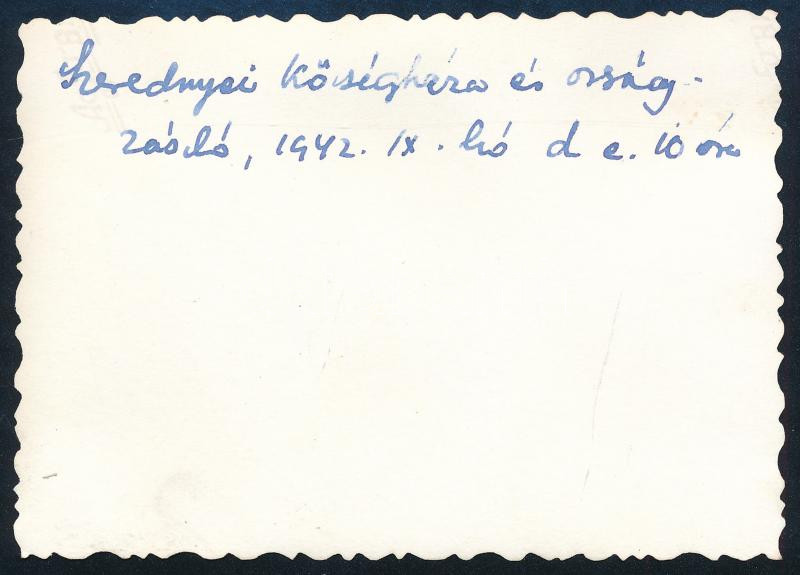 Szerednyei Községháza és ország-
zászló, 1942. IX. hó d e. 10 óra